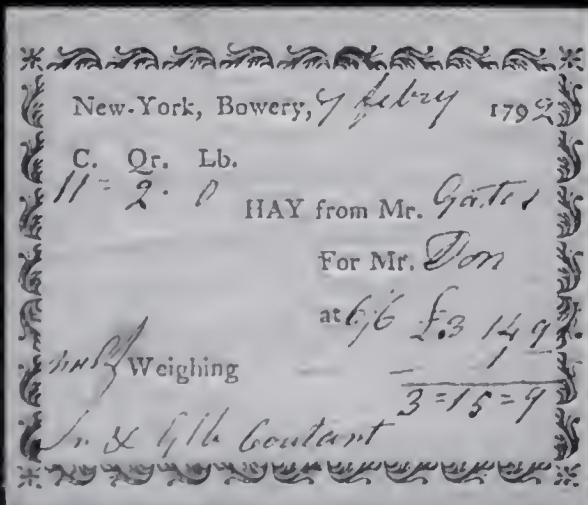 New-York, Bowery, 7 febry 1792
C. Qr. Lb.
11 = 2 · 0
HAY from Mr. Gates
For Mr. Don
at 6/6 £.3 14 9
Weighing — – 1 –
3 = 15 = 9
Jn & Glb Coutant